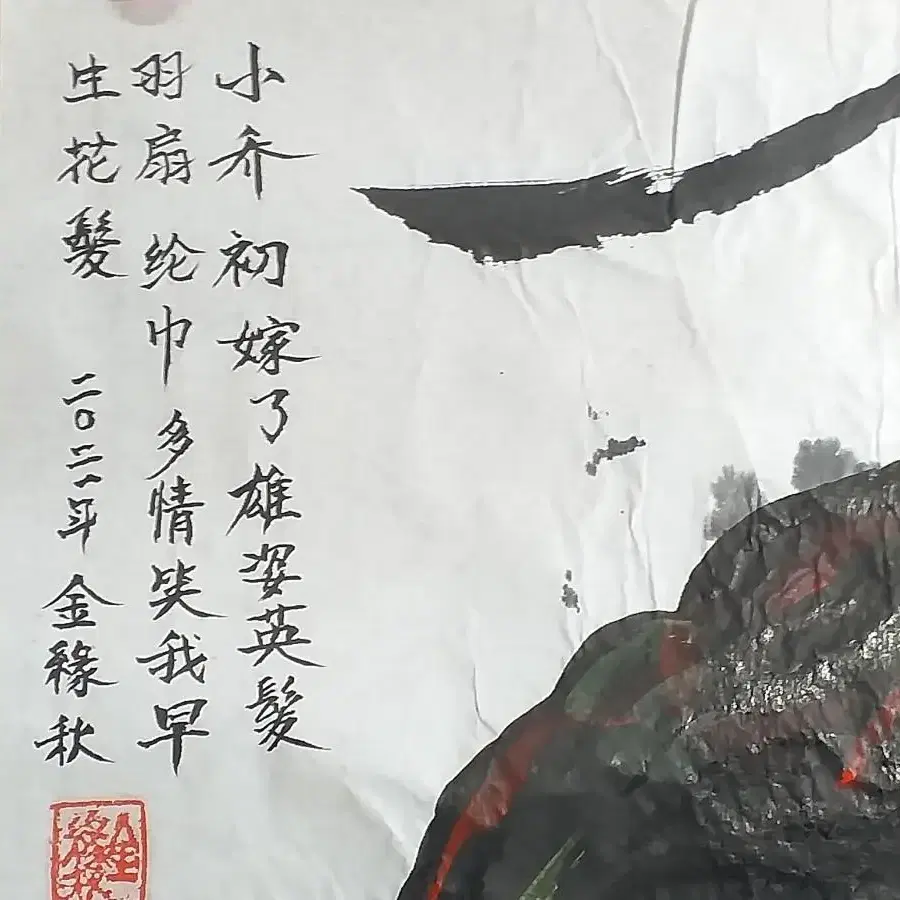 小乔初嫁了雄姿英髮
羽扇纶巾多情笑我早
生花髮 二〇二一年 金緣秋